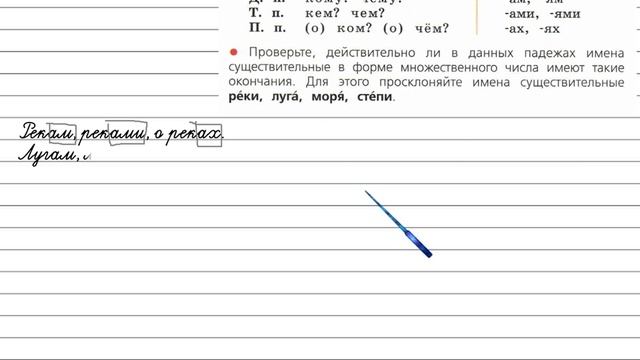 Д. п. кому? чему? -ам, -ям
Т. п. кем? чем? -ами, -ями
П. п. (о) ком? (о) чём? -ах, -ях
• Проверьте, действительно ли в данных падежах имена
существительные в форме множественного числа имеют такие
окончания. Для этого просклоняйте имена существительные
ре́ки, луга́, моря́, сте́пи.
Рекам, реками, о реках.
Лугам,